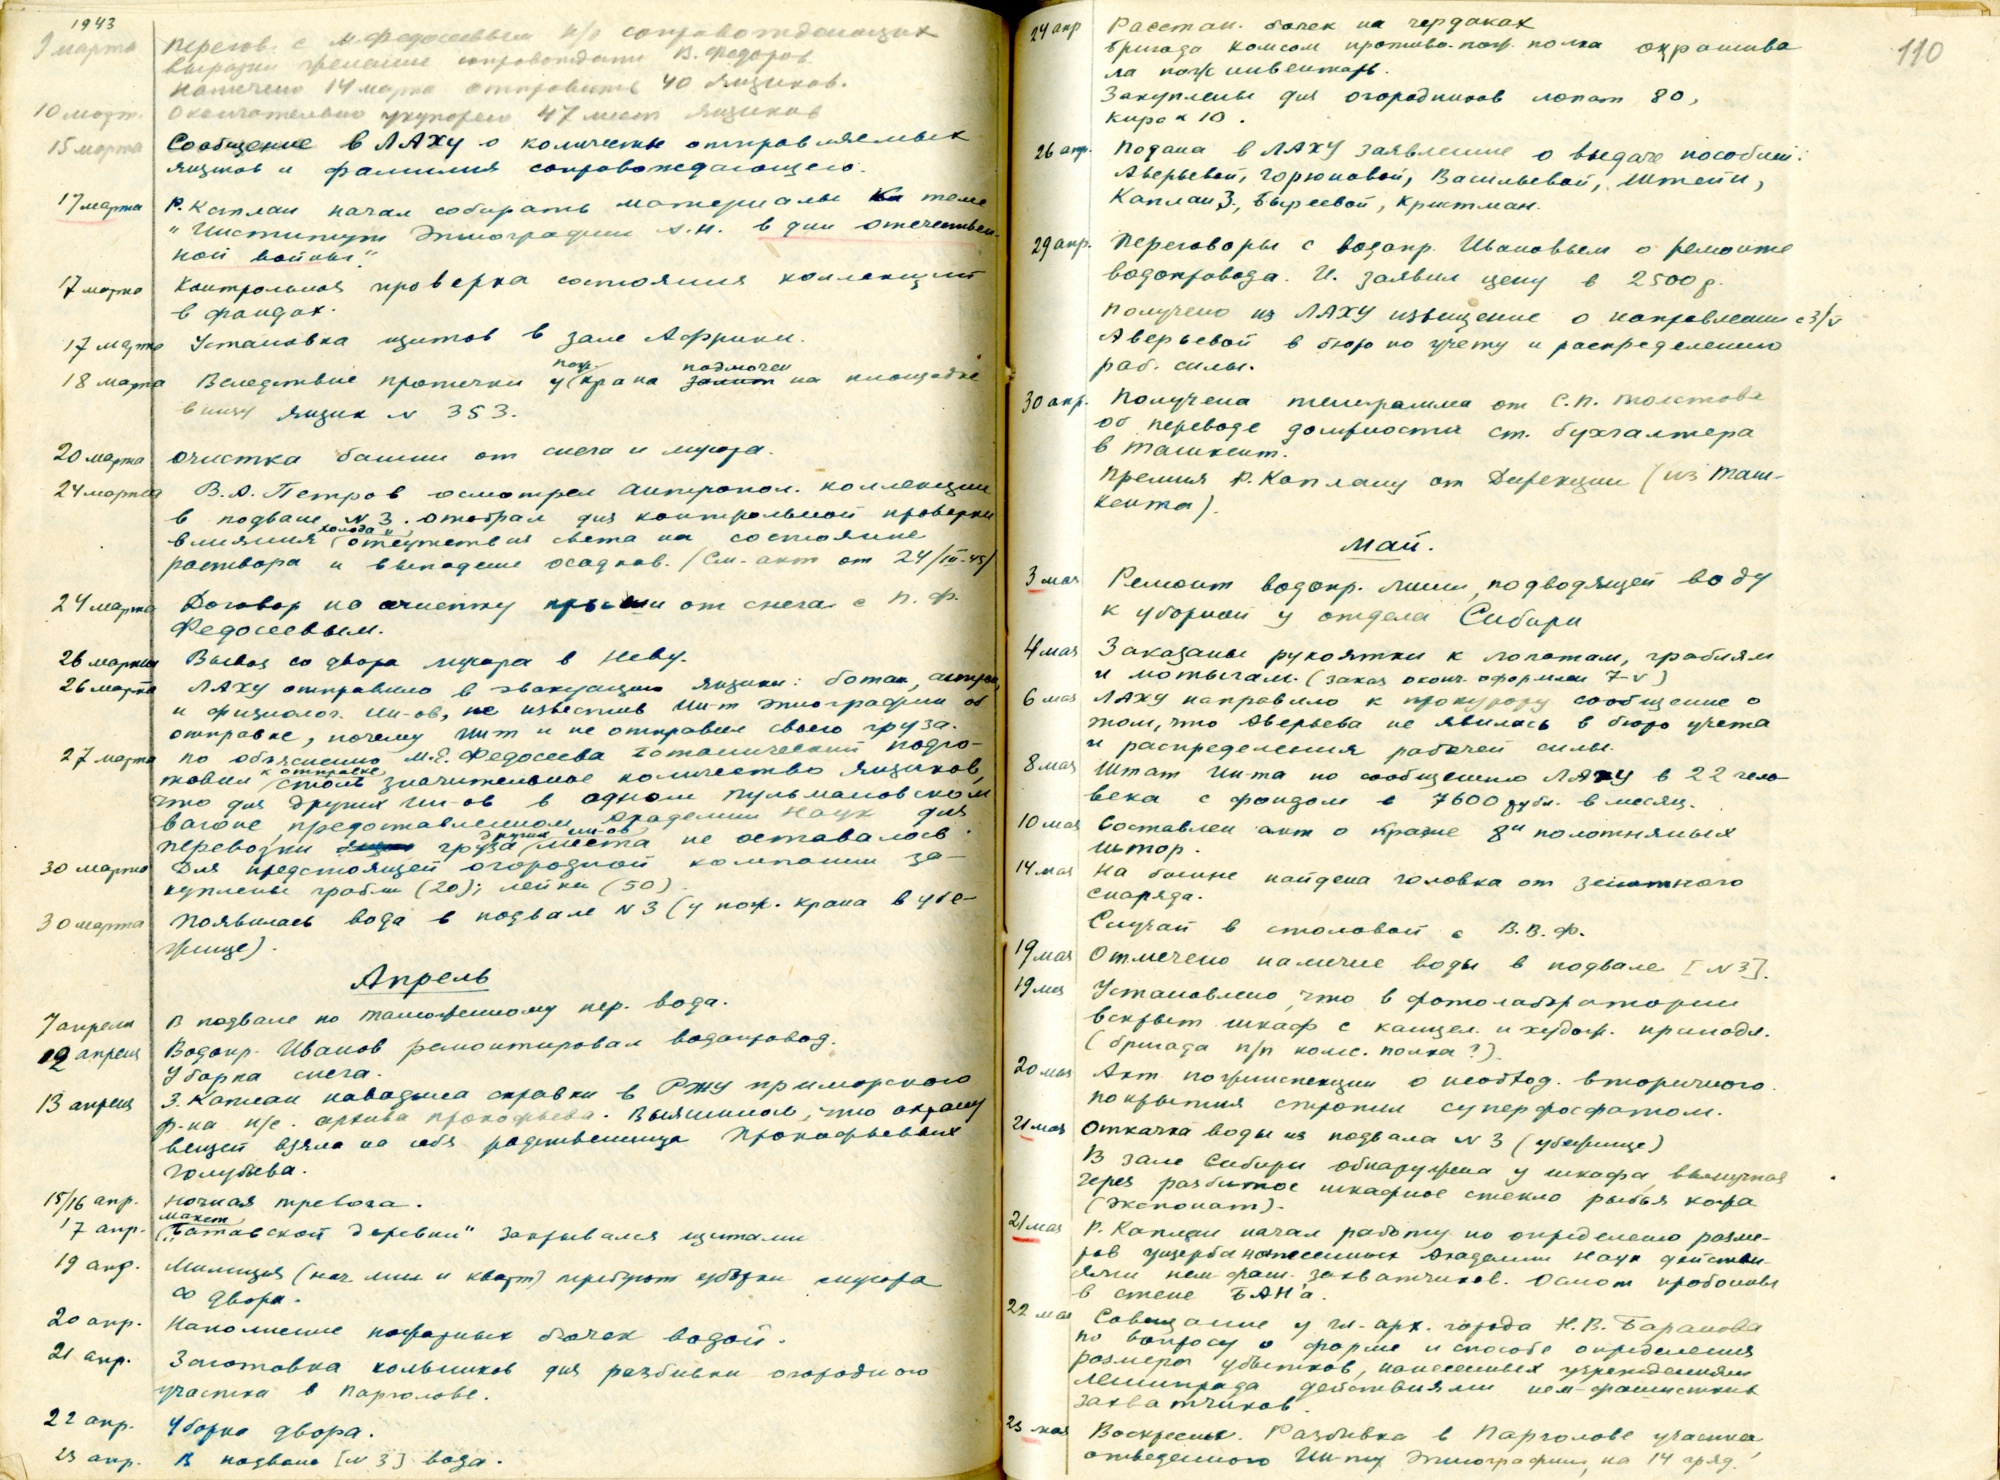 1943
9 марта Перегов. с М. Федосеевым н/о сопровождающих
выразил желание сопровождать В. Федоров.
Намечено 14 марта отправить 40 ящиков.
10 март. Окончательно укупорено 47 мест ящиков
15 марта Сообщение в ЛАХУ о количестве отправляемых
ящиков и фамилия сопровождающего.
17 марта Р. Каплан начал собирать материалы на теме
"Институт Этнографии А.Н. в дни отечествен-
ной войны".
17 марта Контрольная проверка состояния коллекций
в фондах.
17 марта Установка щитов в зале Африки.
18 марта Вследствие протечки у пож. крана подмочен на площадке
внизу ящик N 353.
20 марта Очистка башни от снега и мусора.
24 марта В.А. Петров осмотрел антропол. коллекции
в подвале N 3. Отобрал для контрольной проверки
влияния холода и отсутствия света на состояние
раствора и выпадение осадков. (См. акт от 24/III-43)
24 марта Договор на очистку крыши от снега с П.Ф.
Федосеевым.
26 марта Вывоз со двора мусора в Неву.
26 марта ЛАХУ отправило в эвакуацию ящики: ботан, астрон,
и физиолог. ин-ов, не известив Ин-т Этнографии об
отправке, почему Инт и не отправил своего груза.
27 марта По объяснению М.Е. Федосеева ботанический подго-
товил к отправке столь значительное количество ящиков,
что для других ин-ов в одном пульмановском
вагоне, предоставленном Академии Наук для
перевозки груза других ин-ов места не оставалось.
30 марта Для предстоящей огородной компании за-
куплены грабли (20); лейки (50).
30 марта Появилась вода в подвале N 3 (у пож. крана в убе-
жище).
Апрель
7 апреля В подвале по таможенному пер. вода.
12 апреля Водопр. Иванов ремонтировал водопровод.
Уборка снега.
13 апреля З. Каплан наводила справки в РЖУ приморского
р-на н/с. архива Прокофьева. Выяснилось, что охрану
вещей взяла на себя родственница Прокофьевых
Голубева.
15/16 апр. Ночная тревога.
17 апр. макет "Батавской деревни" закрывался щитами
19 апр. Милиция (нач мил и кварт) требует уборки мусора
со двора.
20 апр. Наполнение пожарных бочек водой.
21 апр. Заготовка колышков для разбивки огородного
участка в Парголове.
22 апр. Уборка двора.
23 апр. В подвале [N 3] вода.
110
24 апр Расстан. бочек на чердаках
Бригада комсом противо-пож. полка окрашива
ла пож инвентарь.
Закуплены для огородников лопат 80,
кирок 10.
26 апр. Подана в ЛАХУ заявление о выдаче пособий:
Аверьевой, Горюновой, Васильевой, Штейн,
Каплан З., Быреевой, Кристман.
29 апр. Переговоры с водопр. Ивановым о ремонте
водопровода. И. заявил цену в 2500 р.
Получено из ЛАХУ извещение о направлении с 3/V
Аверьевой в бюро по учету и распределению
раб. силы.
30 апр. Получена телеграмма от С.П. Толстова
об переводе должности ст. бухгалтера
в Ташкент.
Премия Р. Каплану от Дирекции (из Таш-
кента).
Май.
3 мая Ремонт водопр. линии, подводящей воду
к уборной у отдела Сибири
4 мая Заказаны рукоятки к лопатам, граблям
и мотыгам. (заказ оконч. оформлен 7-V)
6 мая ЛАХУ направило к прокурору сообщение о
том, что Аверьева не явилась в бюро учета
и распределения рабочей силы.
8 мая Штат Ин-та по сообщению ЛАХУ в 22 чело
века с фондом в 7600 рубл. в месяц.
10 мая Составлен акт о краже 8и полотняных
штор.
14 мая На башне найдена головка от зенитного
снаряда.
Случай в столовой с В.В.Ф.
19 мая Отмечено наличие воды в подвале [N 3].
19 мая Установлено, что в фотолаборатории
вскрыт шкаф с канцел. и худож. принадл.
(бригада п/п комс. полка?).
20 мая Акт пожинспекции о необход. вторичного
покрытия стропил суперфосфатом.
21 мая Откачка воды из подвала N 3 (убежище)
В зале Сибири обнаружена у шкафа, вынутая
через разбитое шкафное стекло рыбья кожа
(экспонат).
21 мая Р. Каплан начал работу по определению разме-
ров ущерба нанесенных Академии Наук действи-
ями нем-фаш. захватчиков. Осмот пробоины
в стене БАН'а.
22 мая Совещание у гл. арх. города Н.В. Баранова
по вопросу о форме и способе определения
размера убытков, нанесенных учреждениям
Ленинграда действиями нем-фашистких
захватчиков.
23 мая Воскресник. Разбивка в Парголове участка,
отведенного Ин-ту Этнографии, на 14 гряд.